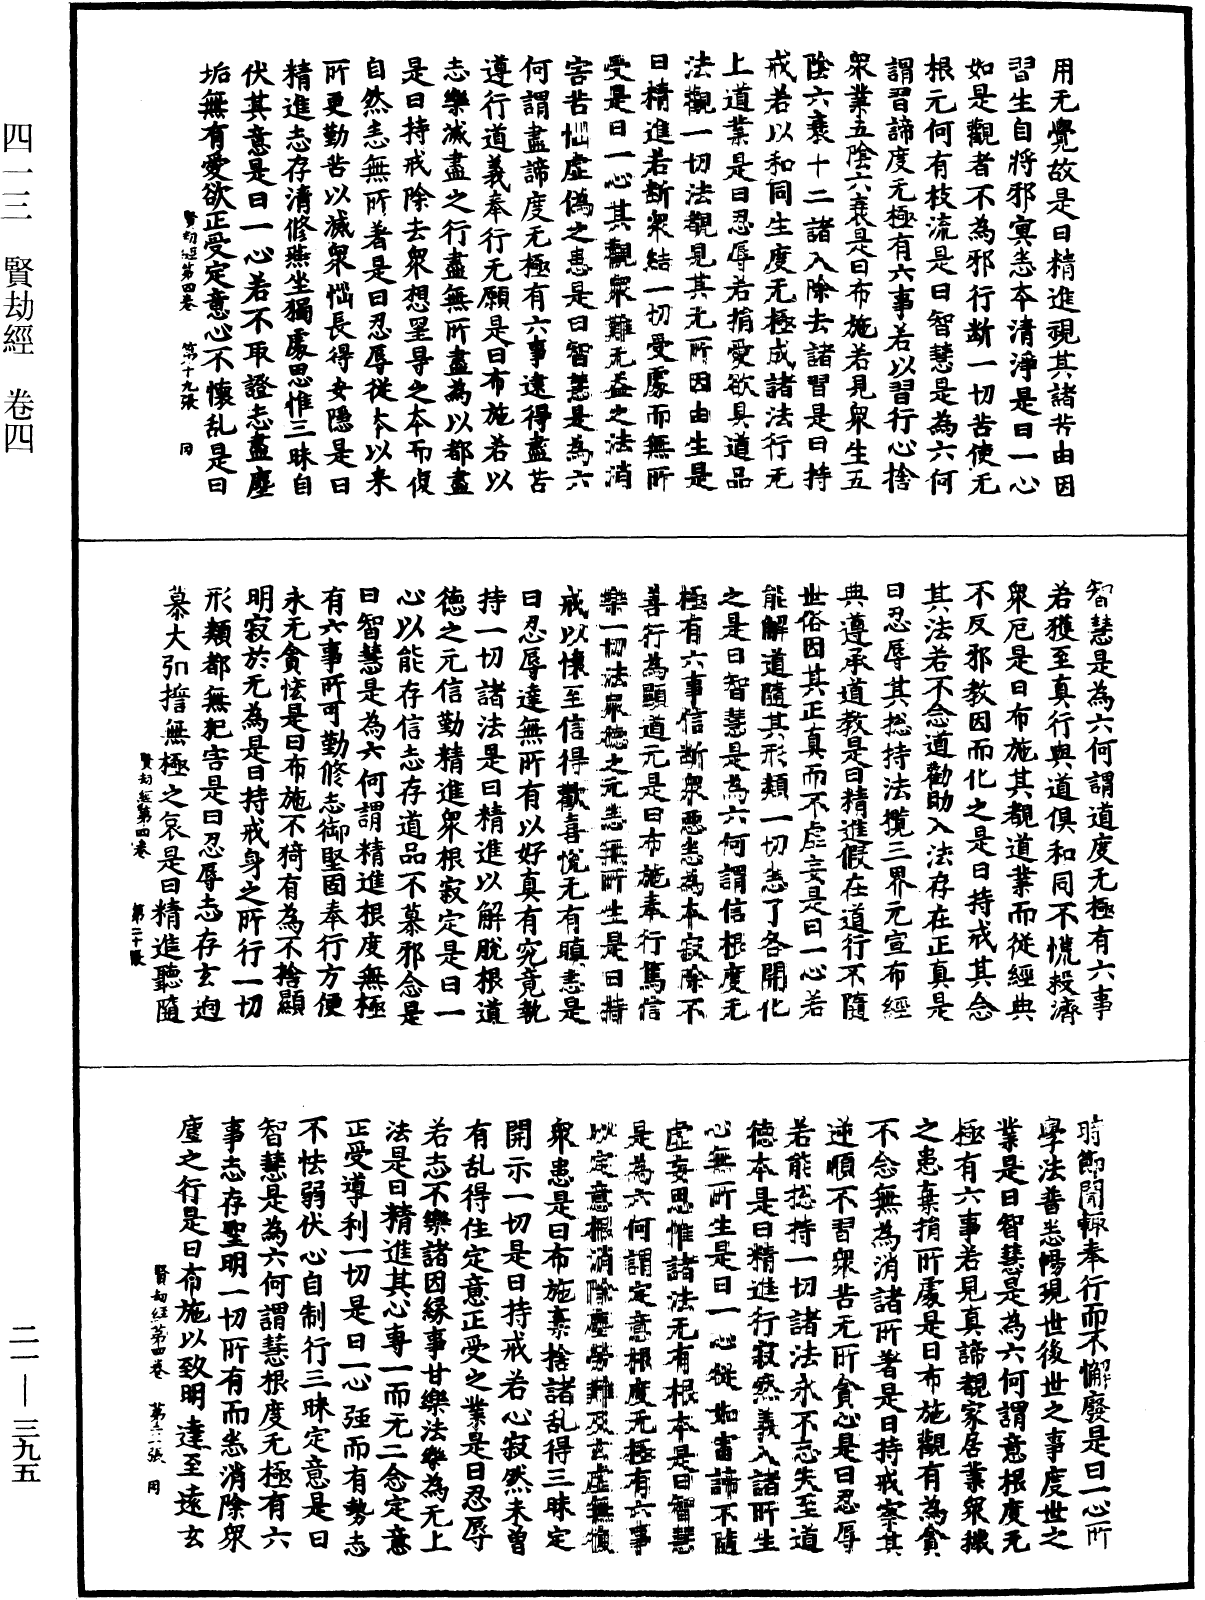 四一三　賢劫經　卷四
用无覺故是曰精進視其諸苦由因
習生自將邪冥悉本清淨是曰一心
如是觀者不為邪行断一切苦使无
根元何有枝流是曰智慧是為六何
謂習諦度无極有六事若以習行心捨
衆業五陰六衰是曰布施若見衆生五
陰六衰十二諸入除去諸習是曰持
戒若以和同生度无極成諸法行无
上道業是曰忍辱若捐愛欲具道品
法觀一切法覩見其无所因由生是
曰精進若断衆結一切受處而無所
受是曰一心其觀衆難无益之法消
害苦惱虛僞之患是曰智慧是為六
何謂盡諦度无極有六事逮得盡苦
遵行道義奉行无願是曰布施若以
志樂滅盡之行盡無所盡為以都盡
是曰持戒除去衆想罣㝵之本而復
自然恙無所著是曰忍辱從本以来
所更勤苦以滅衆惱長得安隱是曰
精進志存清修燕坐獨處思惟三昧自
伏其意是曰一心若不取證志盡塵
垢無有愛欲正受定意心不懷乱是曰
賢劫經第四卷　第十九張　同
智慧是為六何謂道度无極有六事
若獲至真行與道俱和同不慌殺濟
衆厄是曰布施其覩道業而從經典
不反邪教因而化之是曰持戒其念
其法若不念道勸助入法存在正真是
曰忍辱其捴持法攬三界元宣布經
典遵承道教是曰精進假在道行不隨
世俗因其正真而不虛妄是曰一心若
能解道隨其形類一切恙了各開化
之是曰智慧是為六何謂信根度无
極有六事信断衆惡恙為本寂除不
善行為顯道元是曰布施奉行篤信
樂一切法衆德之元恙無所生是曰持
戒以懷至信得歡喜悅无有瞋恚是
曰忍辱達無所有以好真有究竟執
持一切諸法是曰精進以解脫根道
德之元信勤精進衆根寂定是曰一
心以能存信志存道品不慕邪念是
曰智慧是為六何謂精進根度無極
有六事所可勤修志御堅固奉行方便
永无貪恡是曰布施不猗有為不捨顯
明寂於无為是曰持戒身之所行一切
形類都無犯害是曰忍辱志存玄逈
慕大弘誓無極之哀是曰精進聽隨
賢劫經第四卷　第二十張
時節聞輙奉行而不懈廢是曰一心所
學法普恙暢現世後世之事度世之
業是曰智慧是為六何謂意根度无
極有六事若見真諦覩家居業衆擾
之患棄捐所處是曰布施觀有為貪
不念無為消諸所著是曰持戒察其
逆順不習衆苦无所貪心是曰忍辱
若能捴持一切諸法永不忘失至道
德本是曰精進行寂然義入諸所生
心無所生是曰一心從如審諦不隨
虛妄思惟諸法无有根本是曰智慧
是為六何謂定意根度无極有六事
以定意根消除塵勞難及玄虛無復
衆患是曰布施棄捨諸乱得三昧定
開示一切是曰持戒若心寂然未曽
有乱得住定意正受之業是曰忍辱
若志不樂諸因縁事甘樂法樂為无上
法是曰精進其心專一而无二念定意
正受導利一切是曰一心强而有勢志
不怯弱伏心自制行三昧定意是曰
智慧是為六何謂慧根度无極有六
事志存聖明一切所有而恙消除衆
塵之行是曰布施以致明達至遠玄
賢劫經第四卷　第二十一張　同
二一—三九五